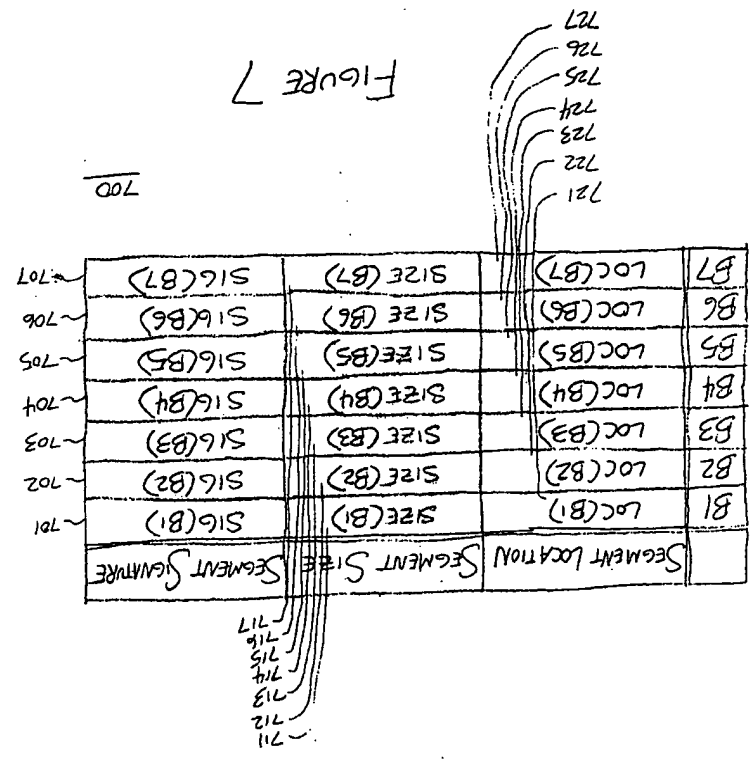 711
712
713
714
715
716
717
SEGMENT LOCATION SEGMENT SIZE SEGMENT SIGNATURE
B1 LOC(B1) SIZE(B1) SIG(B1) 701
B2 LOC(B2) SIZE(B2) SIG(B2) 702
B3 LOC(B3) SIZE(B3) SIG(B3) 703
B4 LOC(B4) SIZE(B4) SIG(B4) 704
B5 LOC(B5) SIZE(B5) SIG(B5) 705
B6 LOC(B6) SIZE(B6) SIG(B6) 706
B7 LOC(B7) SIZE(B7) SIG(B7) 707
721
722
723
724
725
726
727
700
FIGURE 7